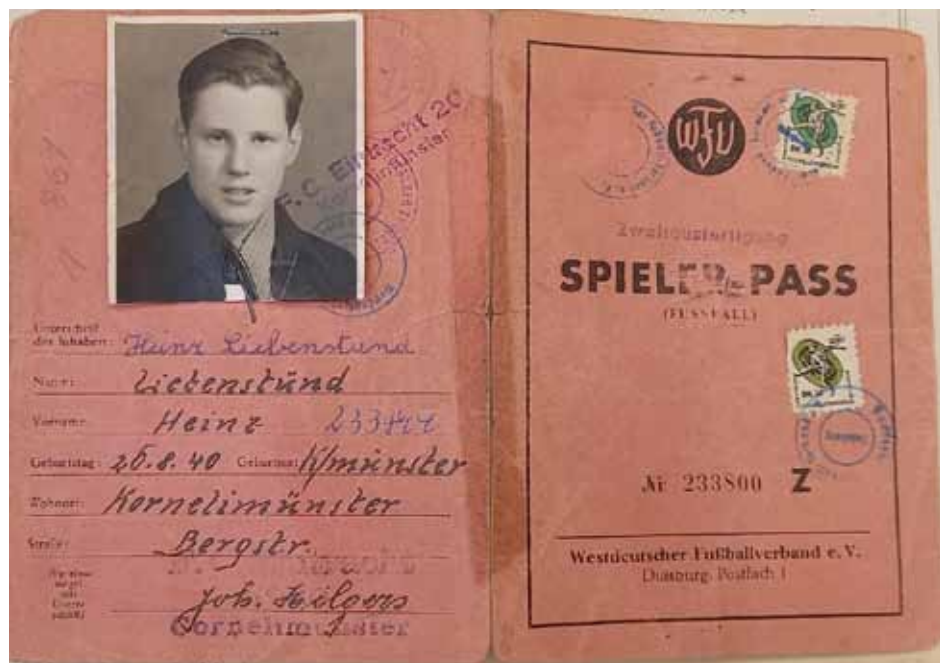 F. C. Eintracht 20
Kornelimünster
Unterschrift
des Inhabers: Heinz Liebenstund
Name: Liebenstünd
Vorname: Heinz 233444
Geburtstag: 26.8.40 Geburtsort K/münster
Wohnort: Kornelimünster
Straße: Bergstr.
Joh. Hilgers
Cornelimünster
WFV
Zweitausfertigung
SPIELER-PASS
(FUSSFALL)
№ 233800 Z
Westdeutscher Fußballverband e. V.
Duisburg, Postfach 1